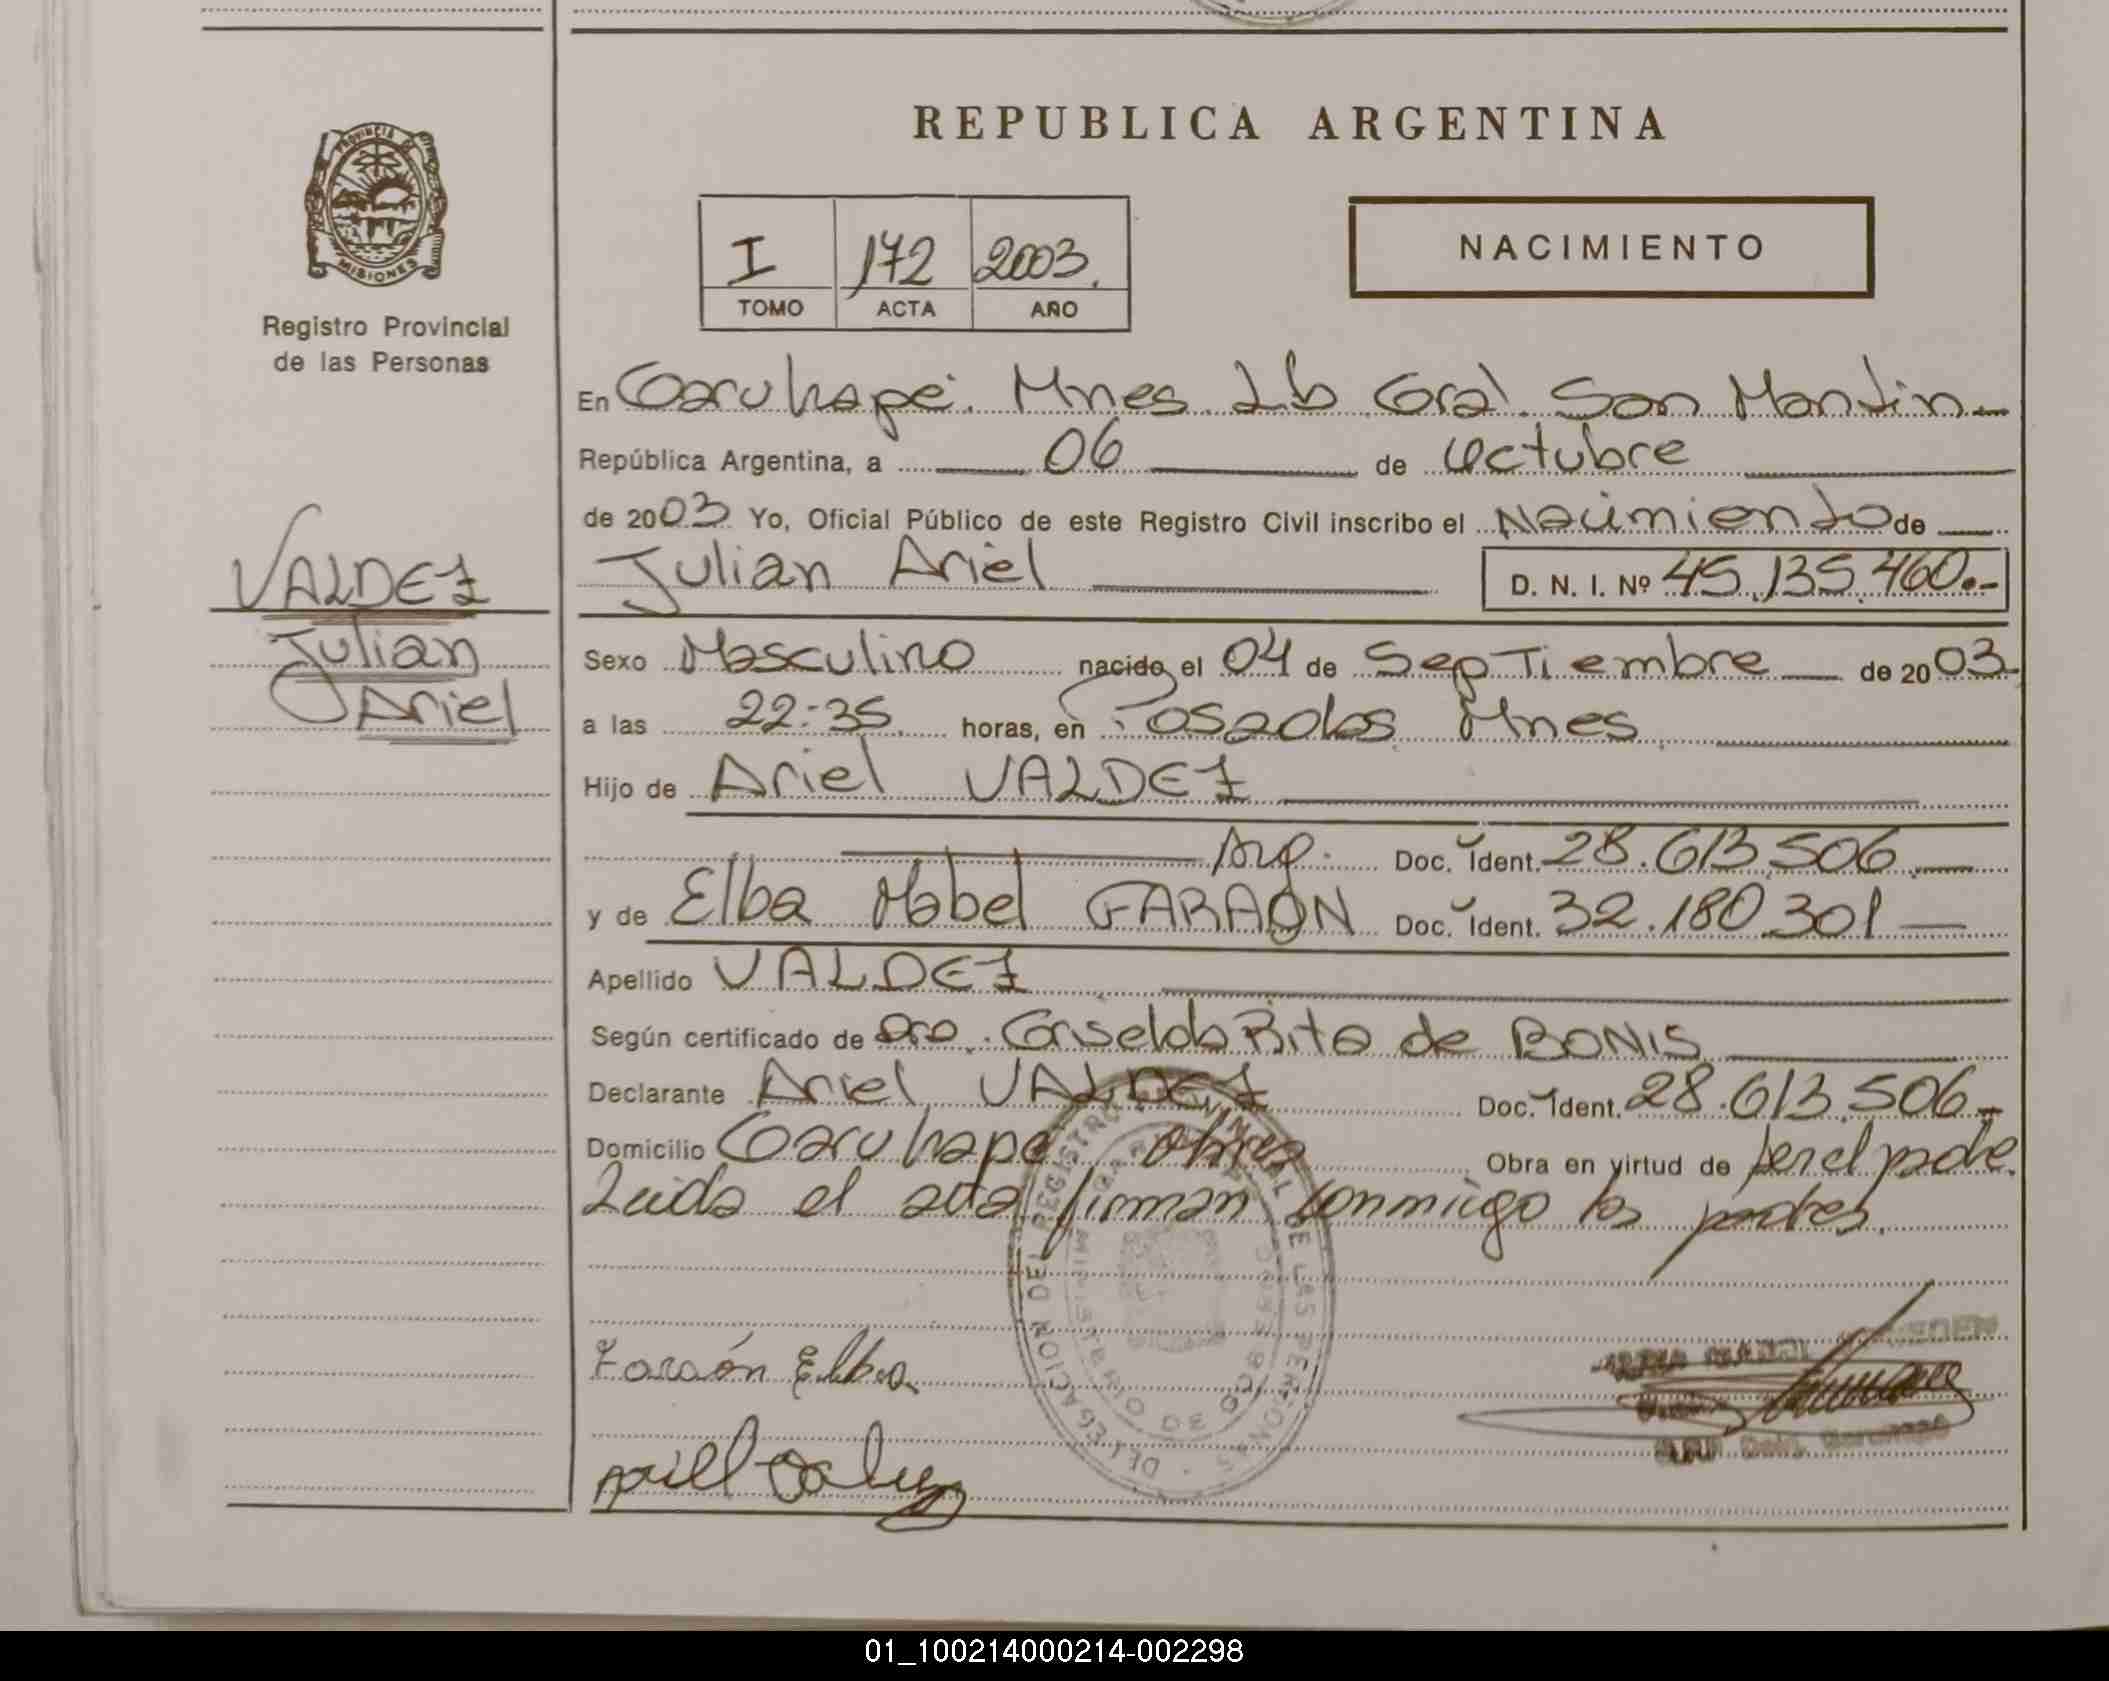 REPUBLICA ARGENTINA
PROVINCIA DE
MISIONES
Registro Provincial
de las Personas
I 172 2003.
TOMO ACTA AÑO
NACIMIENTO
En Garuhapé. Mnes. Lb. Gral. San Martin
República Argentina, a 06 de Octubre
de 2003 Yo, Oficial Público de este Registro Civil inscribo el Nacimiento de
VALDEZ
Julian
Ariel
Julian Ariel D. N. I. Nº 45.135.460.-
Sexo Masculino nacido el 04 de Septiembre de 2003
a las 22:35 horas, en Posadas Mnes
Hijo de Ariel VALDEZ
Arg. Doc. Ident. 28.613.506
y de Elba Mabel FARAÓN Doc. Ident. 32.180.301
Apellido VALDEZ
Según certificado de Dra. Griselda Rita de BONIS
Declarante Ariel VALDEZ Doc. Ident. 28.613.506
Domicilio Garuhapé Mnes Obra en virtud de ser el padre.
Leida el acta firman conmigo los padres.
DELEGACION DEL REGISTRO PROVINCIAL DE LAS PERSONAS
MINISTERIO DE GOBIERNO
Faraón Elba
01_100214000214-002298